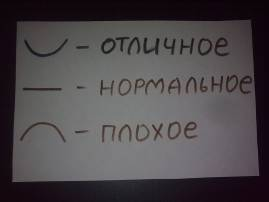 - ОТЛИЧНОЕ
- НОРМАЛЬНОЕ
- ПЛОХОЕ